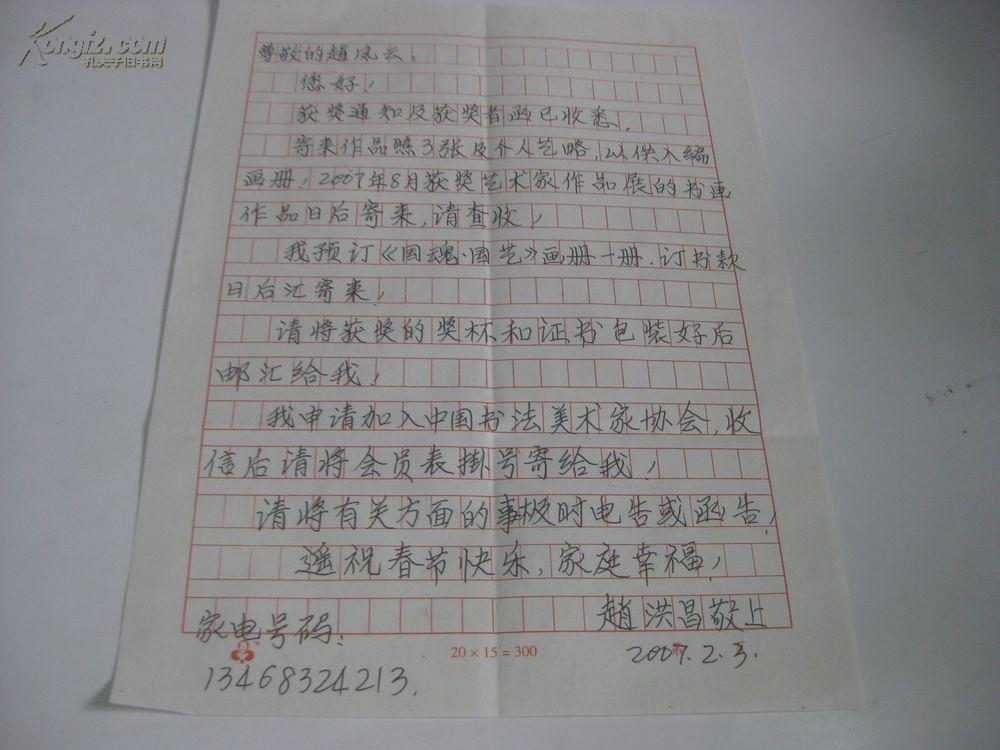 Kongfz.com
孔夫子旧书网
尊敬的趙凤云：
您好！
获奖通知及获奖者函已收悉.
寄来作品照3张及个人艺略，以供入编
画册，2007年8月获奖艺术家作品展的书画
作品日后寄来，请查收！
我预订《国魂·国艺》画册一册.订书款
日后汇寄来！
请将获奖的奖杯和证书包装好后
邮汇给我！
我申请加入中国书法美术家协会，收
信后请将会员表掛号寄给我！
请将有关方面的事极时电告或函告！
遥祝春节快乐，家庭幸福！
趙洪昌敬上
家电号码：
20×15=300
2007.2.3.
13468324213.